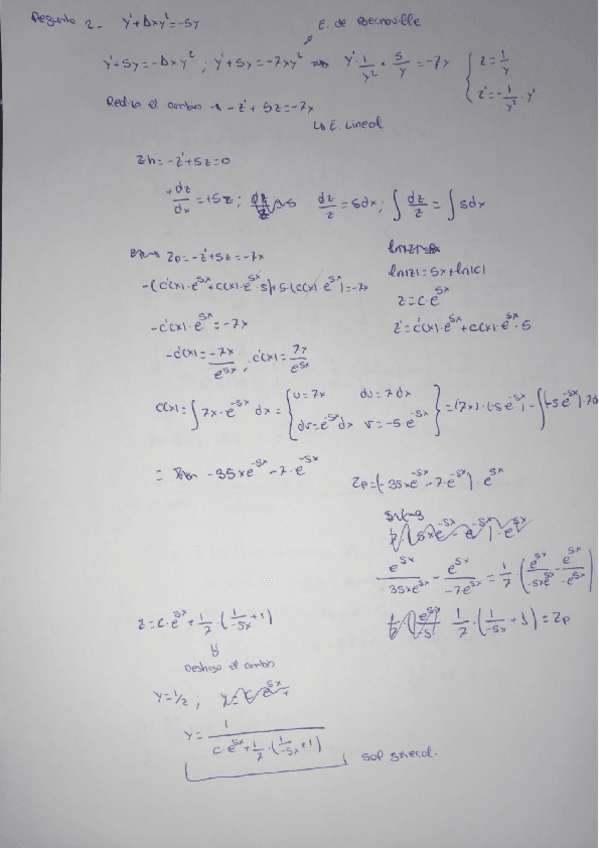 Pregunta 2.- y'+Δxy²=-5y
E. de Bernouille
y'+5y=-Δxy² ; y'+5y=-7xy² ⇒ y'·1/y² + 5/y = -7x { z=1/y
z'=-1/y²·y'
Realizo el cambio → -z'+5z=-7x
↳ E. Lineal
zh=-z'+5z=0
+dz/dx=+5z ; dz/z=5dx ; ∫dz/z=∫5dx
zp=-z'+5z=-7x
ln|z|=5x+ln|c|
-(c'(x)·e^5x+c(x)·e^5x·5)+5·(c(x)·e^5x)=-7x
z=c·e^5x
-c'(x)·e^5x=-7x
z'=c'(x)·e^5x+c(x)·e^5x·5
-c'(x)=-7x/e^5x ; c'(x)=7x/e^5x
c(x)=∫7x·e^-5x dx={u=7x du=7dx
dv=e^-5x dx v=-5·e^-5x}=(7x)·(-5e^-5x)-∫(-5e^-5x)·7d
= -35xe^-5x-7·e^-5x
zp=(-35xe^-5x-7·e^-5x)·e^5x
e^5x/-35xe^5x - e^5x/-7e^5x = 1/7 (e^5x/-5xe^5x - e^5x/-e^5x)
z=c·e^5x+1/7·(1/-5x+1)
1/7·(1/-5x+1)=zp
Deshago el cambio
y=1/z ;
y=1/(c·e^5x+1/7·(1/-5x+1))
sol general.